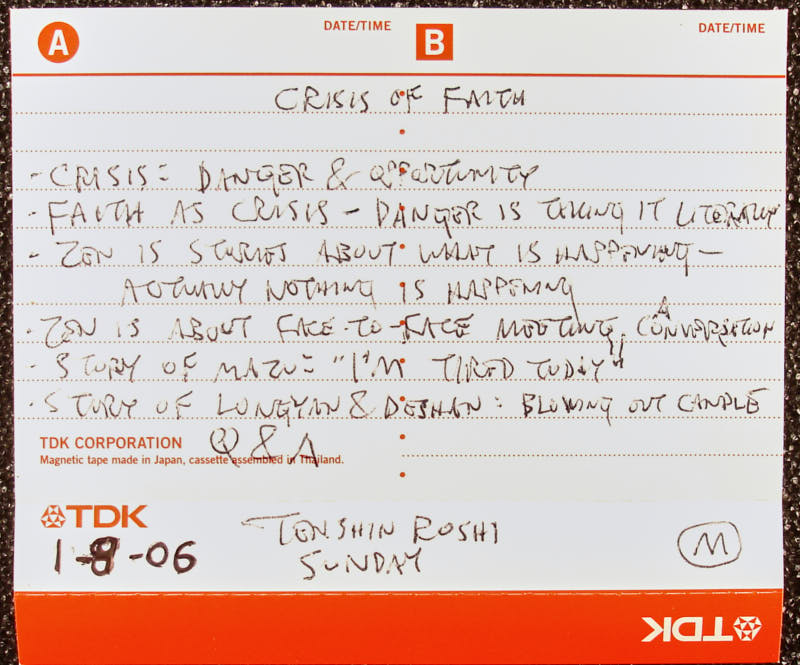 A DATE/TIME B DATE/TIME
CRISIS OF FAITH
- CRISIS: DANGER & OPPORTUNITY
- FAITH AS CRISIS - DANGER IS TAKING IT LITERARLY
- ZEN IS STORIES ABOUT WHAT IS HAPPENING -
ACTUALLY NOTHING IS HAPPENING
- ZEN IS ABOUT FACE-TO-FACE MEETING, A CONVERSATION
- STORY OF MAZU: "I'M TIRED TODAY"
- STORY OF LONGYAN & DESHAN: BLOWING OUT CANDLE
Q & A
TDK CORPORATION
Magnetic tape made in Japan, cassette assembled in Thailand.
TDK
TENSHIN ROSHI
1-8-06
SUNDAY
M
TDK